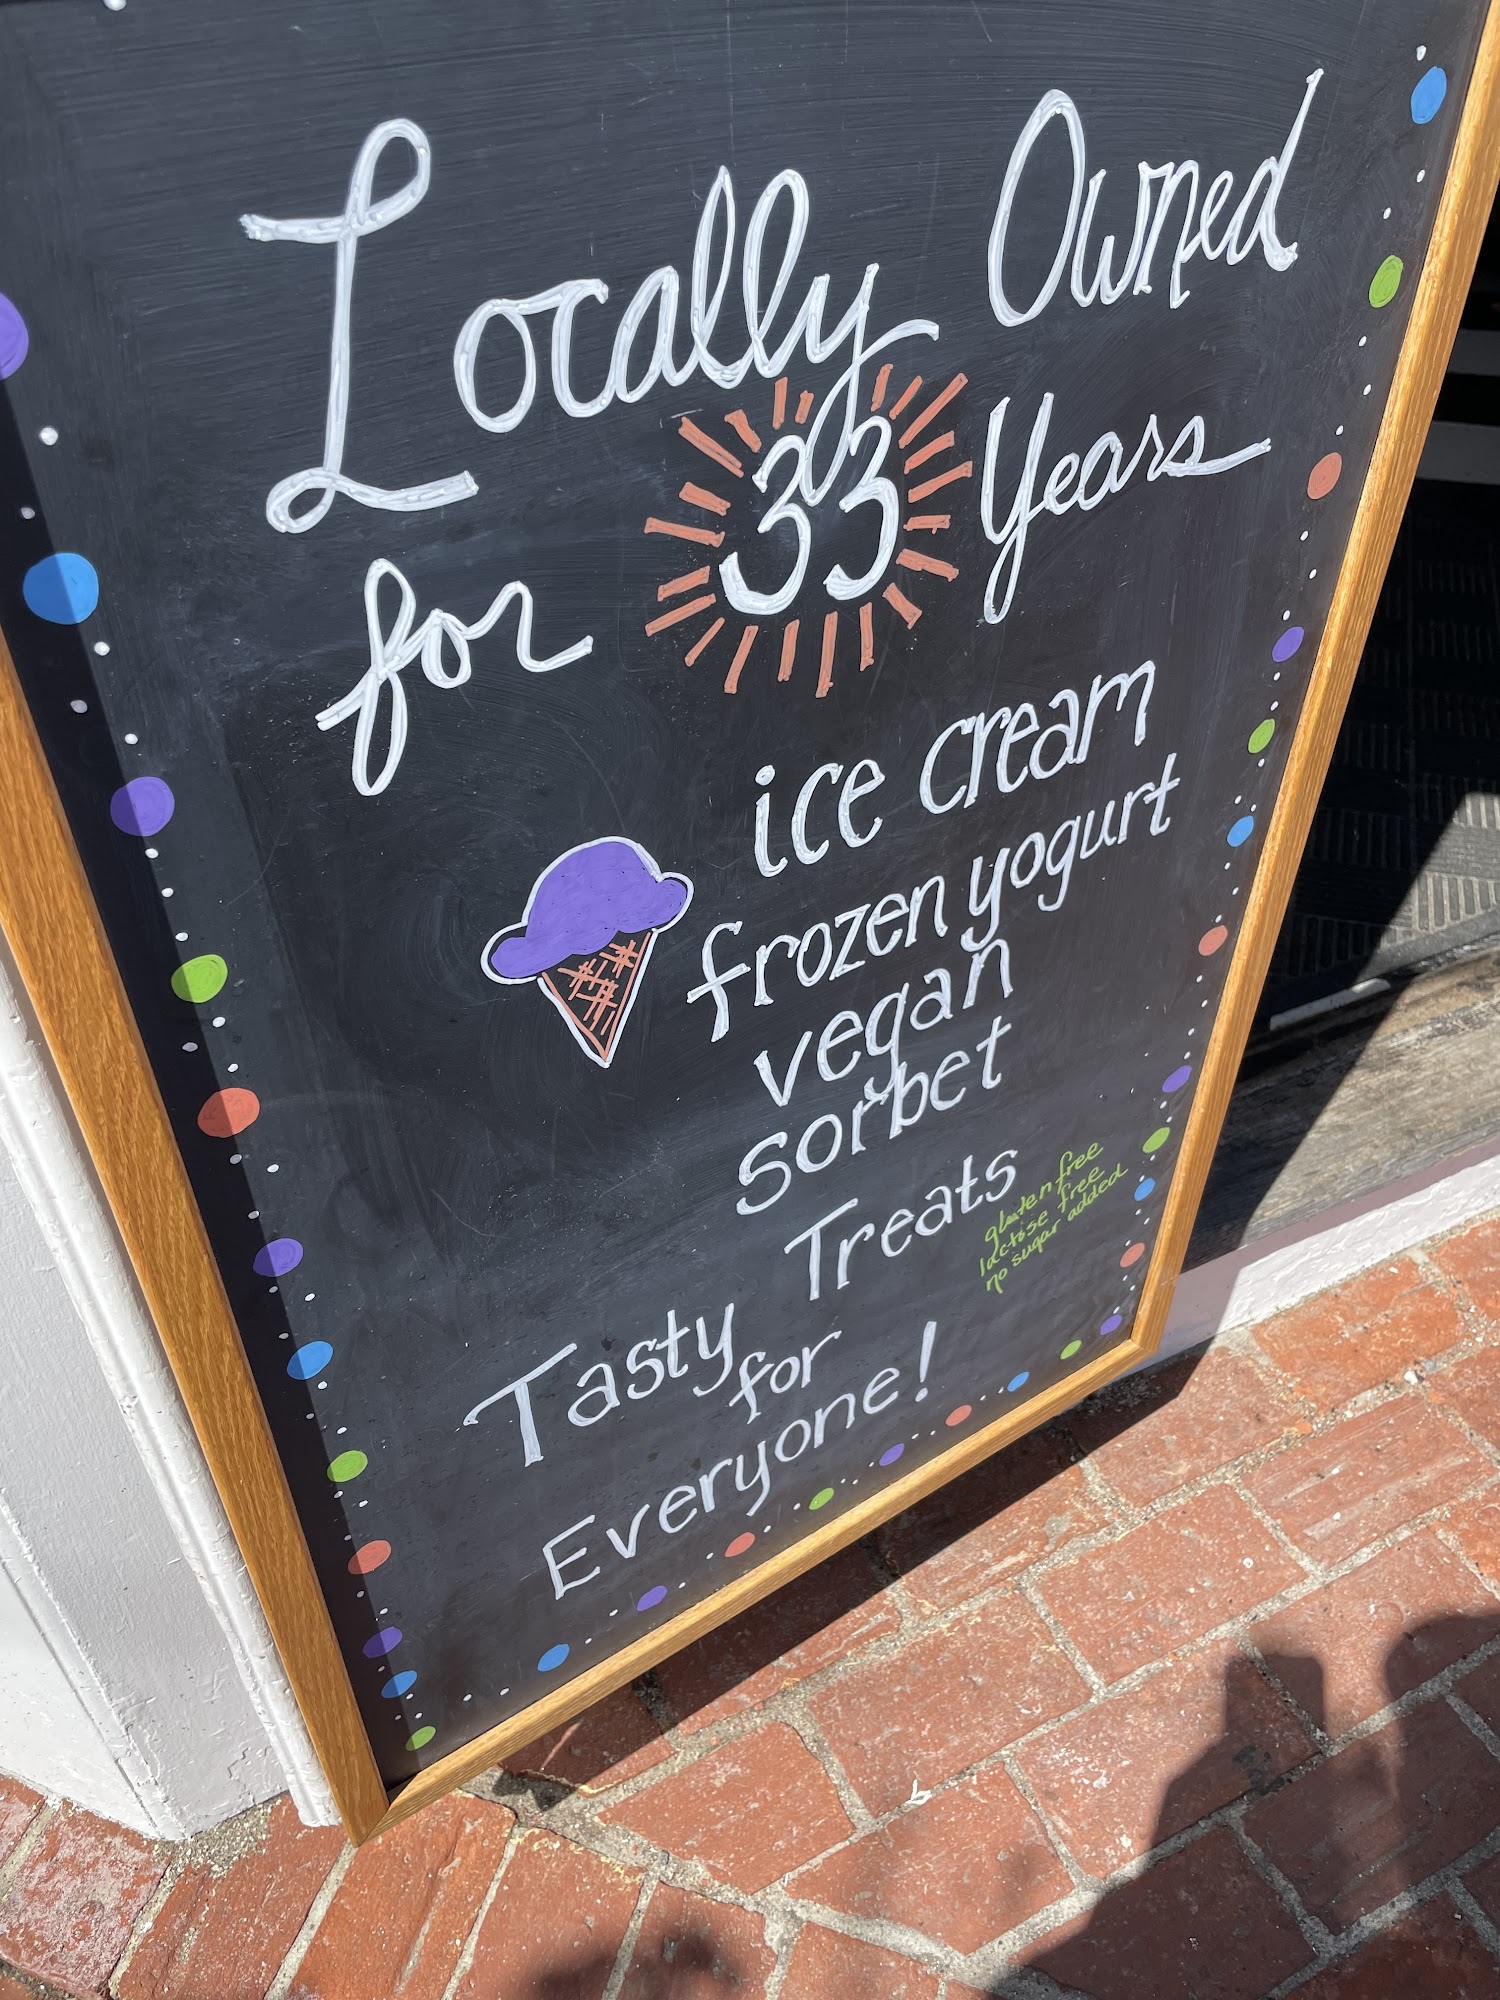 Locally Owned
for 33 Years
ice cream
frozen yogurt
vegan
sorbet
Tasty Treats
for
Everyone!
gluten free
lactose free
no sugar added